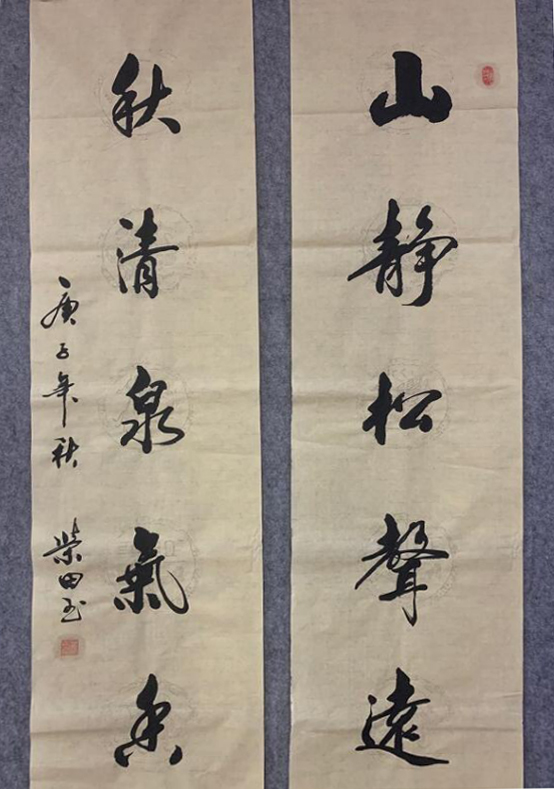 山静松聲遠
秋清泉氣香
庚子年秋
柴田玉